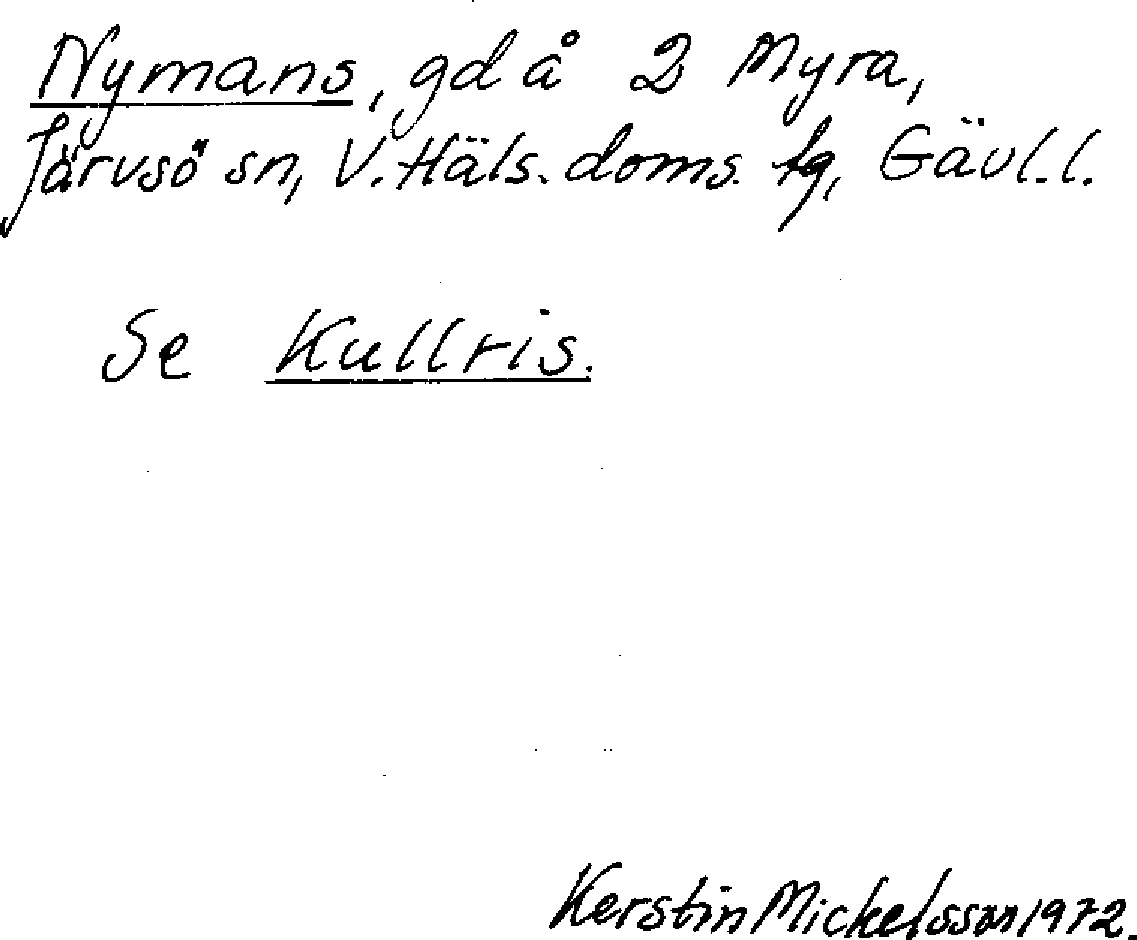 Nymans, gd å 2 Myra,
Järvsö sn, V. Häls. doms. fg, Gävl. l.
Se Kullris.
Kerstin Mickelsson 1972.